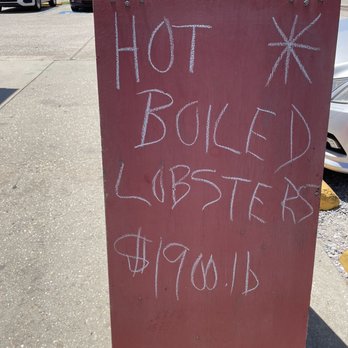 HOT *
BOILED
LOBSTERS
$19.00.lb